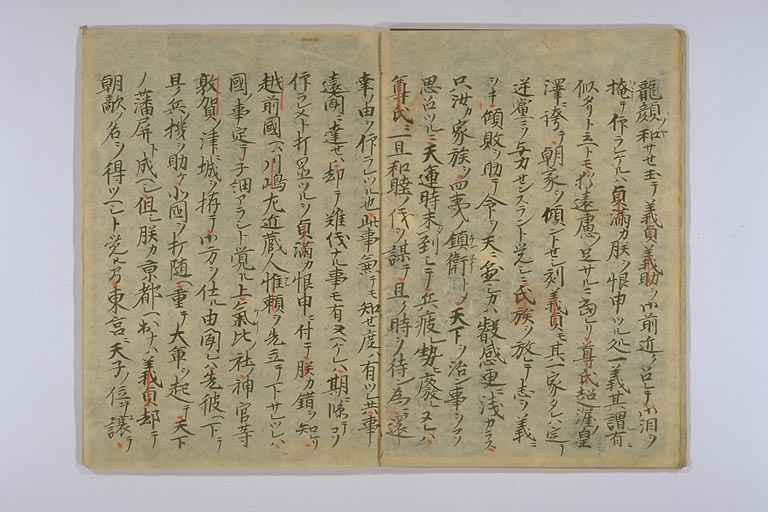 龍顔ヲ和サせ玉テ義貞義助ヲ御前近ク召レテ御泪ヲ
掩テ作ラレケルハ貞満カ朕ヲ恨申ツル処一義其謂有
似タリト云トモ猶遠慮ノ足サルニ当レリ尊氏超涯皇
澤ニ誇テ朝家ヲ傾ントせシ刻義貞モ其一家タレハ定テ
逆黨ニソ与力センスラント覚シニ氏族ヲ放レテ志ヲ義ニ
シテ傾敗ヲ助テ命ヲ天ニ 叡感更ニ浅カラス
只汝カ家族ヲ四夷ノ鎮衛トメ天下ヲ治ン事ヲコソ
思泊ツルニ天運時末到シテ兵疲レ勢ヒ廢レヌレハ
尊氏ニ一旦和睦ノ儀ヲ謀テ且ノ時ヲ待ン為ニ還
幸ノ由ヲ作ラレツル也此事兼テモ知せ度ハ有ツレ共事
遠聞ニ達せハ却テ難儀ナル事モ有ヌヘケレハ期ニ臨テコソ
作ラレメト打置ツルヲ貞満カ恨申ニ付テ朕カ錯ヲ知レリ
越前國ヘハ川嶋左近蔵人惟頼ヲ先立テ下サレツレハ
國ノ事定テ子細アラシト覚ル上氣比ノ社ノ神官等
敦賀ノ津ニ城ヲ拵テ御方ヲ仕ル由聞レハ先彼ヘ下テ
且ク兵ノ機ヲ助ケ小國ヲ打随ヘ重テ大軍ヲ起テ天下
ノ藩屏ト成ヘシ但シ朕カ京都ヘ出ナハ義貞却テ
朝敵ノ名ヲ得ツヘシト覚ル間東宮ニ天子ノ位ヲ譲テ